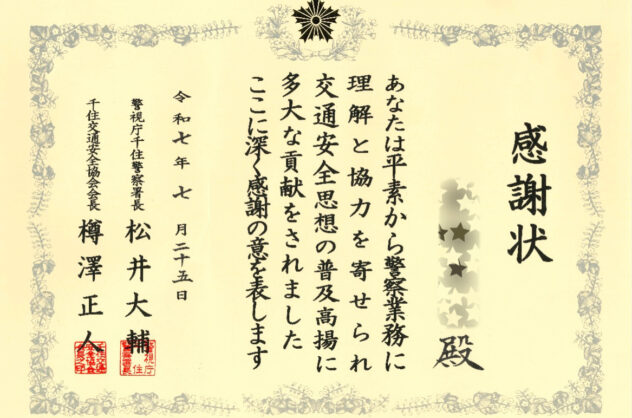 感謝状
殿
あなたは平素から警察業務に
理解と協力を寄せられ
交通安全思想の普及高揚に
多大な貢献をされました
ここに深く感謝の意を表します
令和七年七月二十五日
警視庁千住警察署長 松井大輔
千住交通安全協会会長 樽澤正人